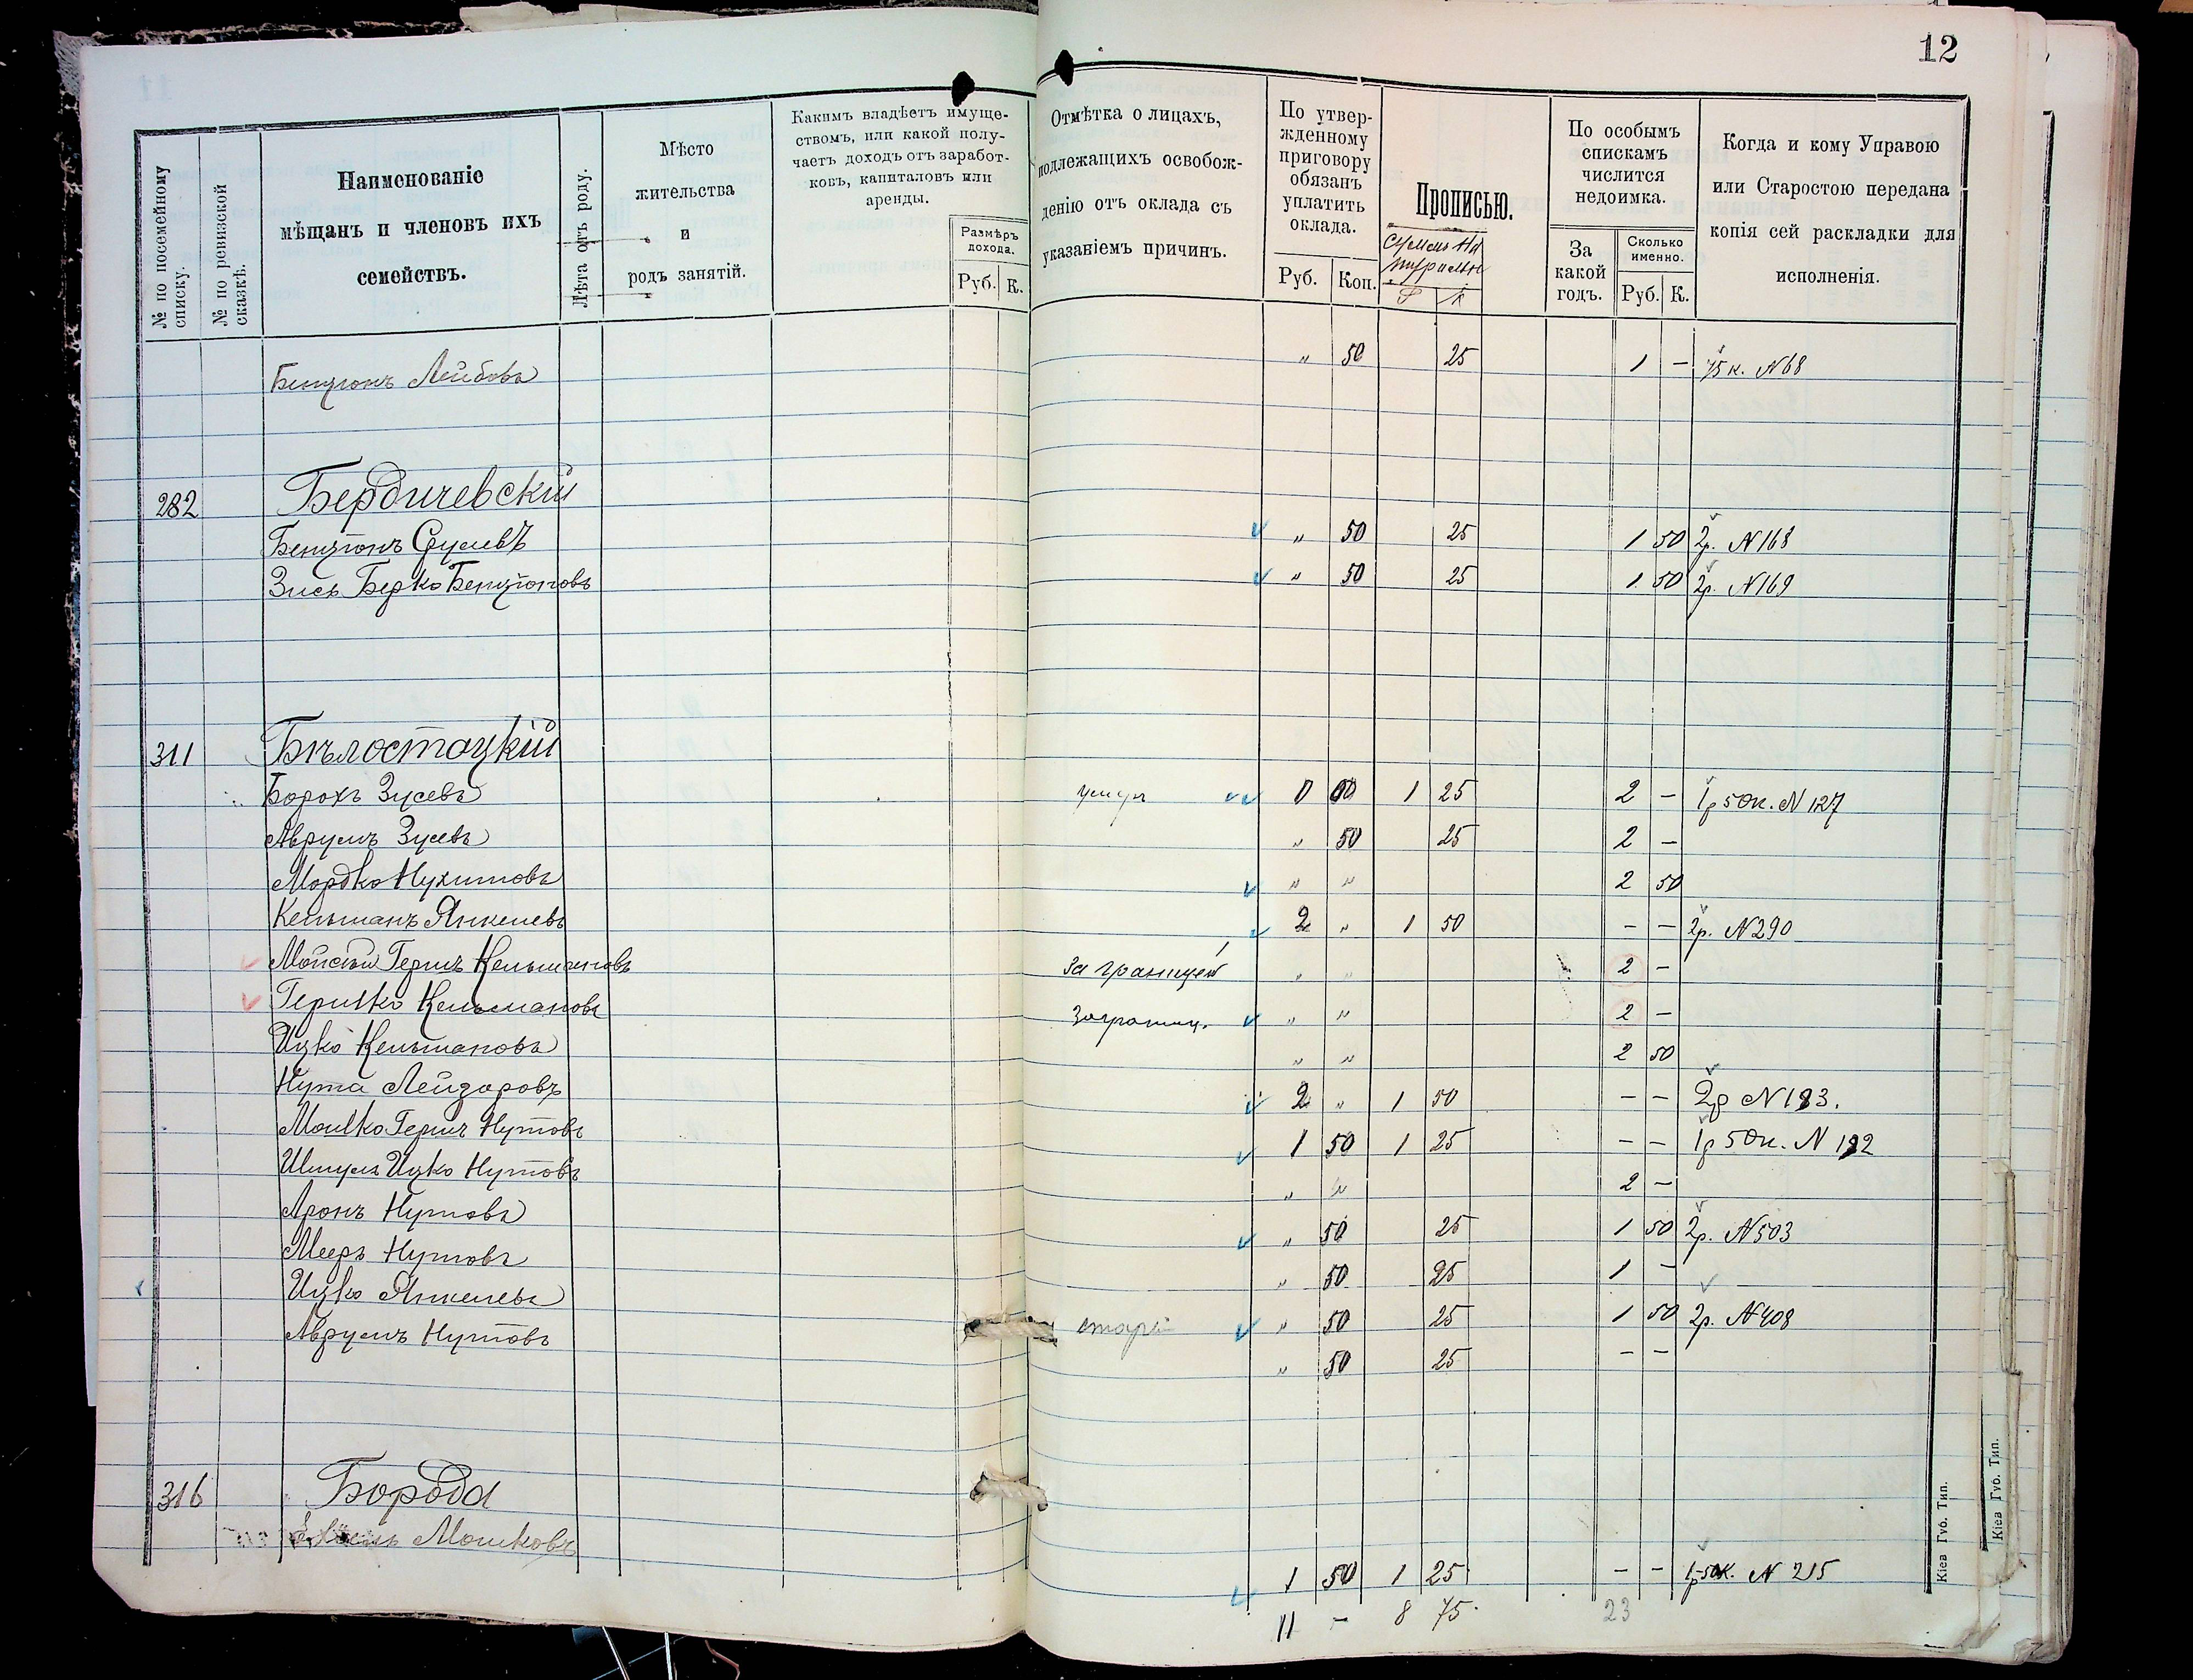 12
№ по посемейному списку.
№ по ревизской сказкѣ.
Наименованіе мѣщанъ и членовъ ихъ семействъ.
Лѣта отъ роду.
Мѣсто жительства и родъ занятій.
Какимъ владѣетъ имуще-
ствомъ, или какой полу-
чаетъ доходъ отъ заработ-
ковъ, капиталовъ или
аренды.
Размѣръ дохода.
Руб. К.
Отмѣтка о лицахъ,
подлежащихъ освобож-
денію отъ оклада съ
указаніемъ причинъ.
По утвер-
жденному
приговору
обязанъ
уплатить
оклада.
Руб. Коп.
Прописью.
Р К
По особымъ
спискамъ
числится
недоимка.
За какой годъ.
Сколько именно.
Руб. К.
Когда и кому Управою
или Старостою передана
копія сей раскладки для
исполненія.
Бенціонъ Лейбовъ " 50 25 1 – 75 к. N 68
282 Бердичевскій
Бенціонъ Срулевъ " 50 25 1 50 2р. N 168
Зись Берко Бенціоновъ " 50 25 1 50 2р. N 169
311 Бѣлостоцкій
Борохъ Зусевъ 1 25 2 – 1р 50к. N 127
Аврумъ Зусевъ " 50 25 2 –
Мордко Нухимовъ " " 2 50
Кельманъ Янкелевъ 2 " 1 50 – – 2р. N 290
Мойсей Гершъ Кельмановъ За границей " " 2 –
Гершко Кельмановъ Заграниц. " " 2 –
Ицко Кельмановъ " " 2 50
Нута Лейзоровъ 2 " 1 50 – – 2р N 193.
Мошко Гершъ Нутовъ 1 50 1 25 – – 1р 50к. N 192
Шмуль Ицко Нутовъ " " 2 –
Аронъ Нутовъ " 50 25 1 50 2р. N 503
Мееръ Нутовъ " 50 25 1 –
Ицко Янкелевъ " 50 25 1 50 2р. N 408
Аврумъ Нутовъ " 50 25 – –
316 Борода
Мошковъ 1 50 1 25 – – 1р 50к. N 215
11 – 8 75 23
Кіев Губ. Тип.
Кіев Губ. Тип.